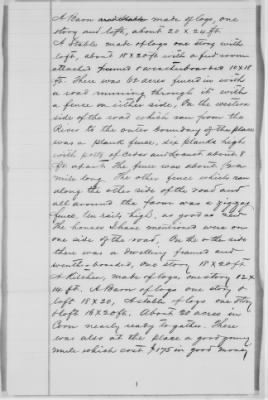 A Barn made of logs, one
story and loft, about 20 x 24 ft.
A stable made of logs one story with
loft, about 18 x 20 ft with a feed room
attached framed & weatherboarded 10 x 18
ft. There was 60 acres fenced in with
a road running through it with
a fence on either side, On the western
side of the road which ran from the
River to the outer boundary of the place
was a plank fence, six planks high
with posts of cedar and locust about 8
ft apart. The fence was about
mile long. The other fence which ran
along the other side of the road and
all around the farm was a zigzag
fence ten rails high, as good as new
The houses I have mentioned were on
one side of the road, On the other side
there was a dwelling framed and
weatherboarded, one story 18 x 20 ft
A Kitchen, made of logs, one story 12 x
14 ft. A Barn of logs one story &
loft 18 x 20, A stable of logs one story
& loft 16 x 20 ft. About 20 acres in
Corn nearly ready to gather. There
was also at the place a good pony
mule which cost $175 in good money